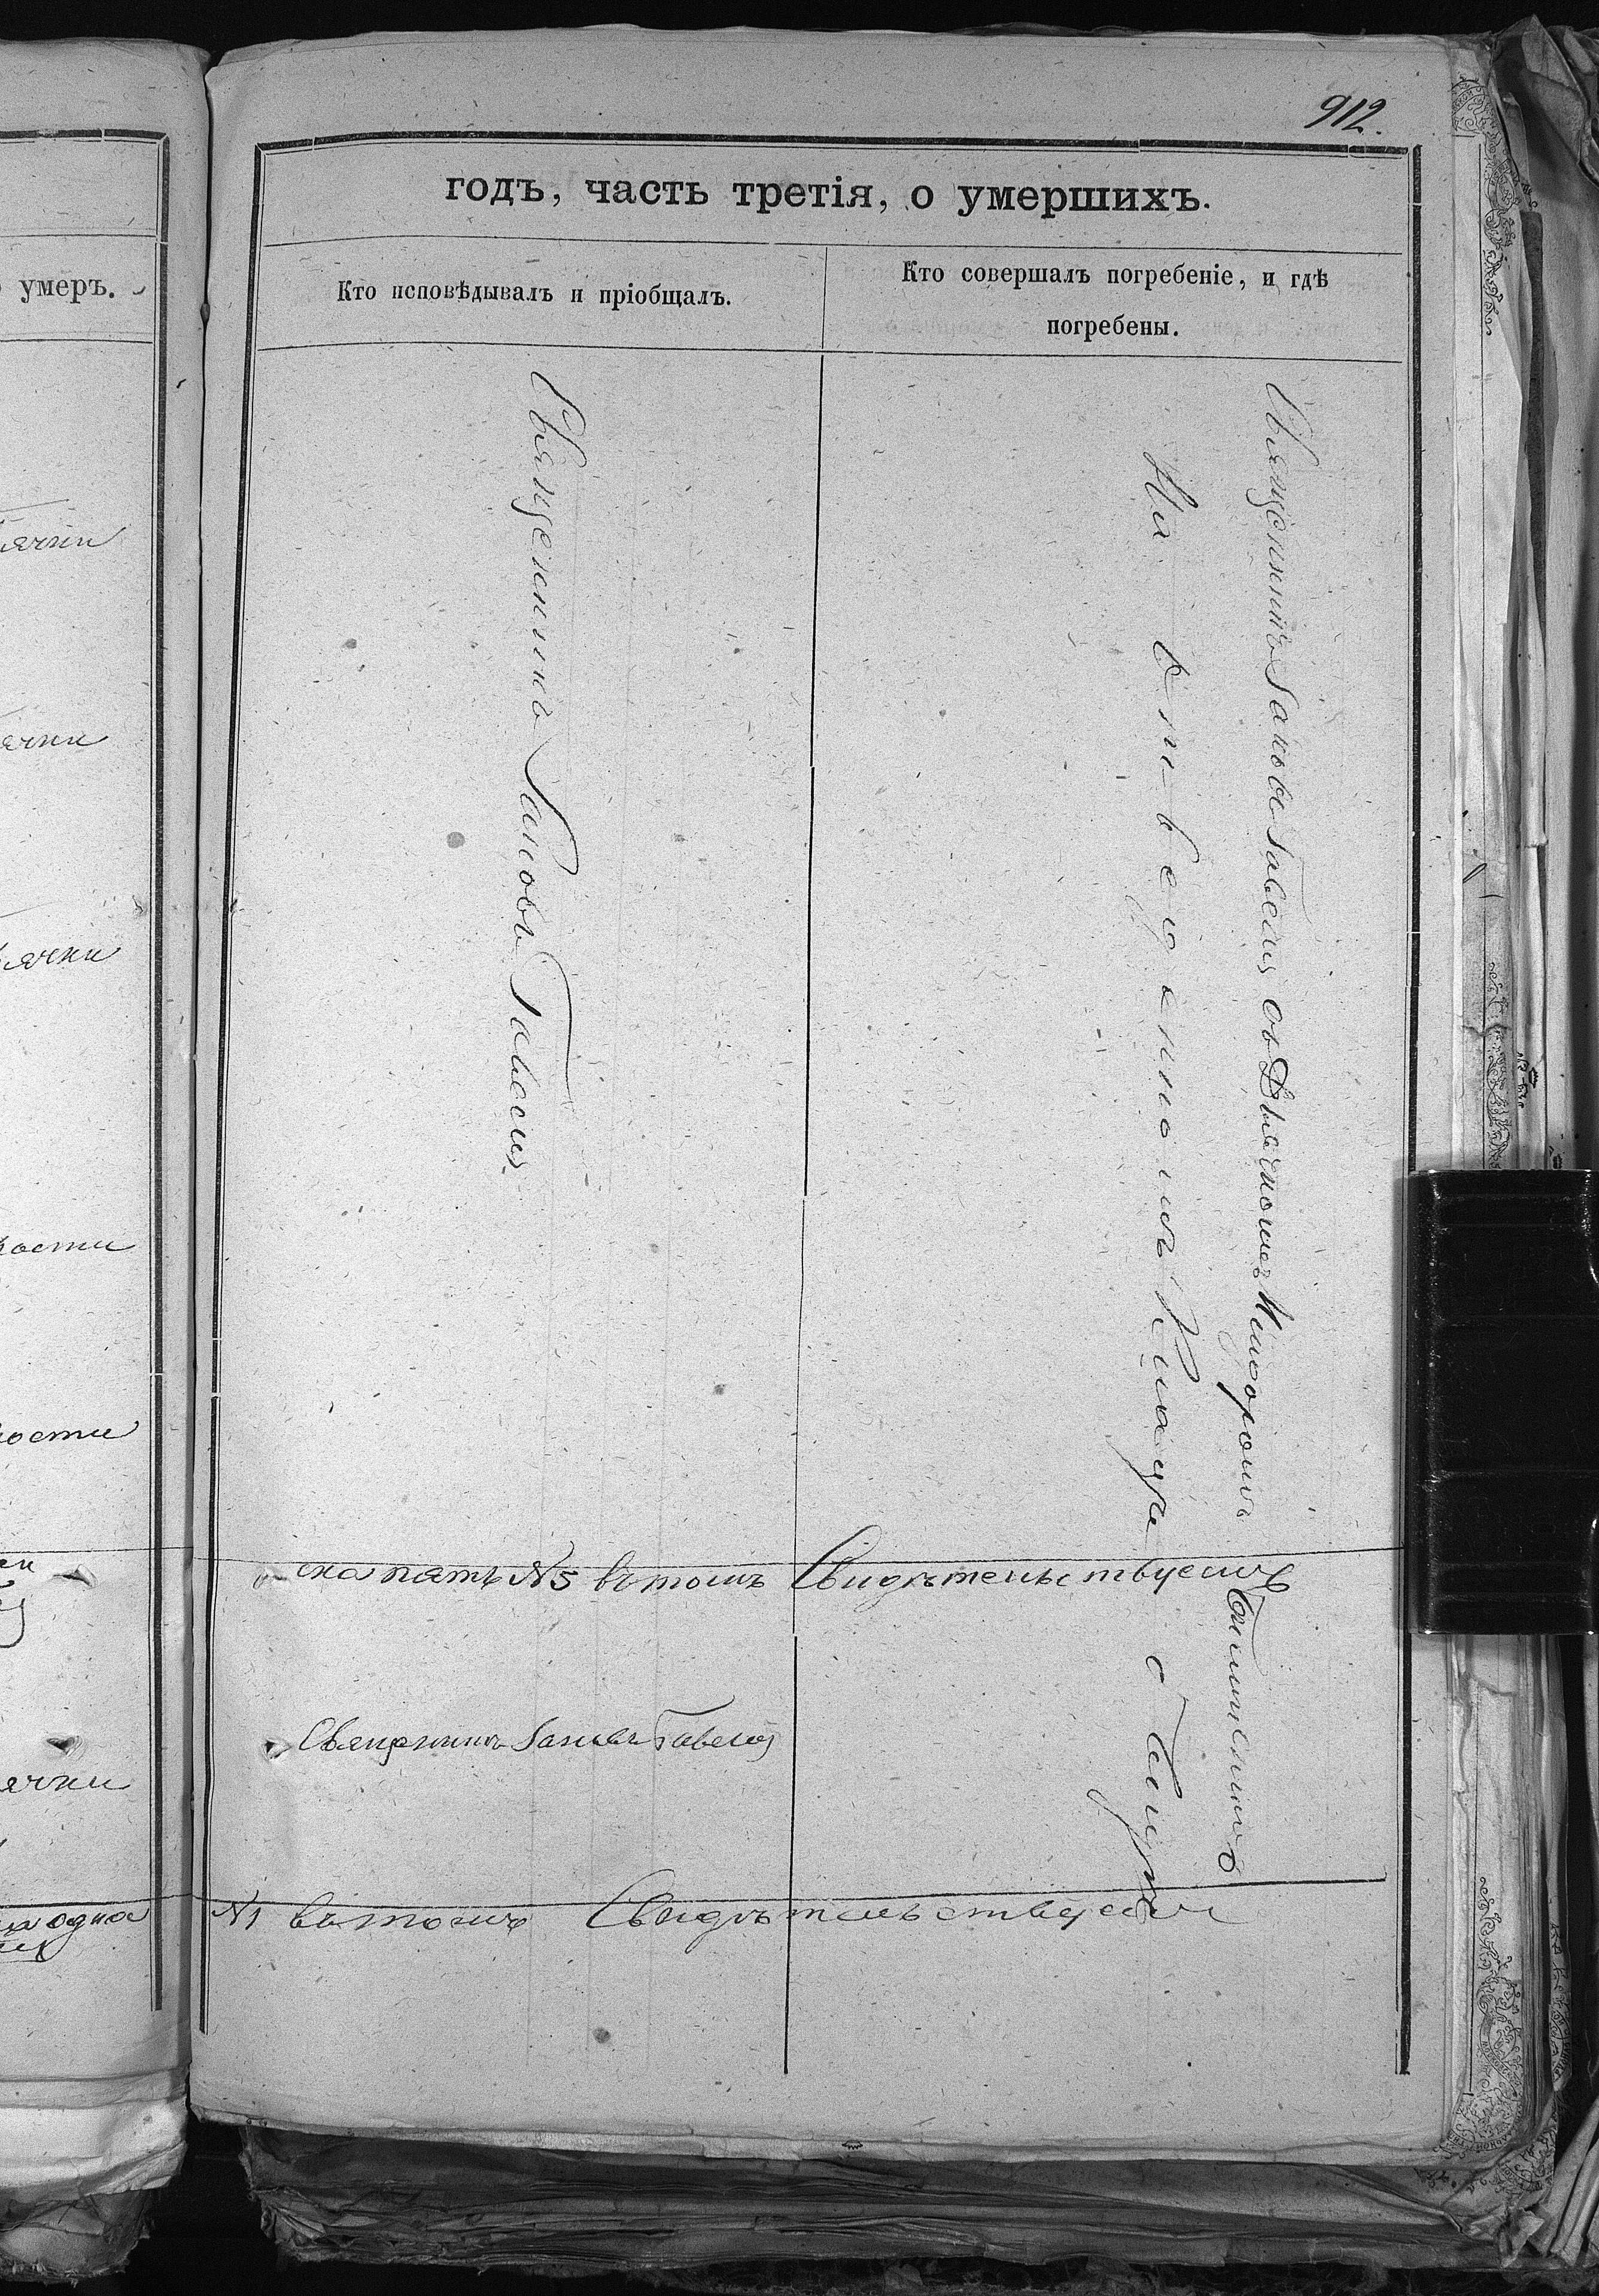 912.
годъ, часть третія, о умершихъ.
умеръ.
Кто исповѣдывалъ и пріобщалъ.
Кто совершалъ погребеніе, и гдѣ
погребены.
Священникъ Іаковъ Гавеля
Священникъ Іаковъ Гавеля съ Дьячкомъ
На отведенномъ Кладби
ска пять №5 въ томъ Свидѣтельствуемъ
Священникъ Іаковъ Гавеля
№1 въ томъ Свидѣтельствуемъ
ячки
ячки
ячки
ности
ности
ячки
одна